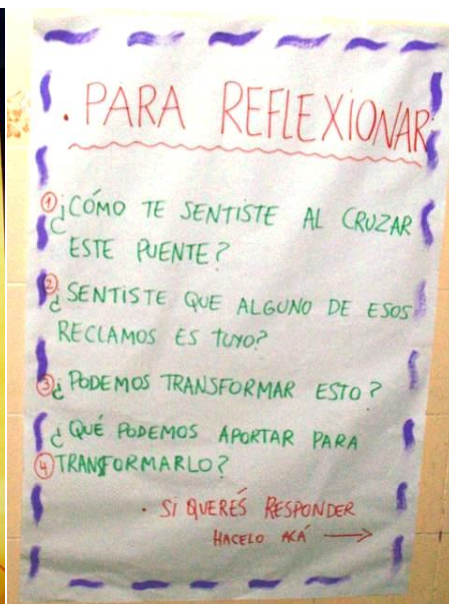 . PARA REFLEXIONAR
① ¿CÓMO TE SENTISTE AL CRUZAR
ESTE PUENTE?
② ¿SENTISTE QUE ALGUNO DE ESOS
RECLAMOS ES TUYO?
③ ¿PODEMOS TRANSFORMAR ESTO?
¿QUÉ PODEMOS APORTAR PARA
④ TRANSFORMARLO?
. SI QUERÉS RESPONDER
HACELO ACÁ →